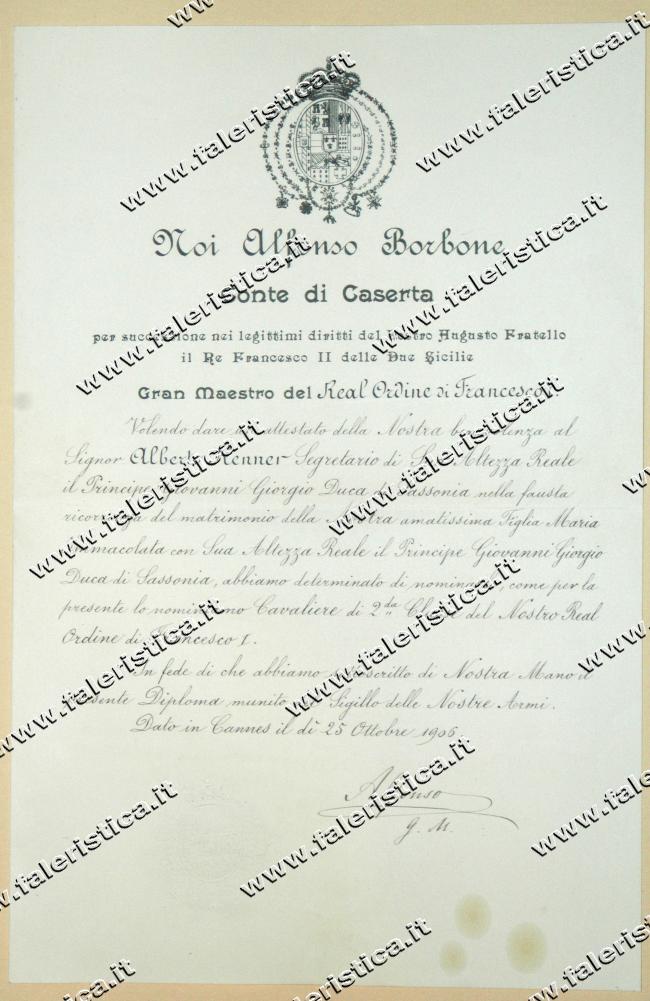 Noi Alfonso Borbone
Conte di Caserta
per successione nei legittimi diritti del Nostro Augusto Fratello
il Re Francesco II delle Due Sicilie
Gran Maestro del Real Ordine di Francesco I
Volendo dare un attestato della Nostra benevolenza al
Signor Alberto Renner Segretario di Sua Altezza Reale
il Principe Giovanni Giorgio Duca di Sassonia nella fausta
ricorrenza del matrimonio della Nostra amatissima Figlia Maria
Immacolata con Sua Altezza Reale il Principe Giovanni Giorgio
Duca di Sassonia, abbiamo determinato di nominarlo, come per la
presente lo nominiamo Cavaliere di 2da Classe del Nostro Real
Ordine di Francesco I.
In fede di che abbiamo sottoscritto di Nostra Mano il
presente Diploma, munito del Sigillo delle Nostre Armi.
Dato in Cannes il dì 25 Ottobre 1906.
Alfonso
G. M.
www.faleristica.it
www.faleristica.it
www.faleristica.it
www.faleristica.it
www.faleristica.it
www.faleristica.it
www.faleristica.it
www.faleristica.it
www.faleristica.it